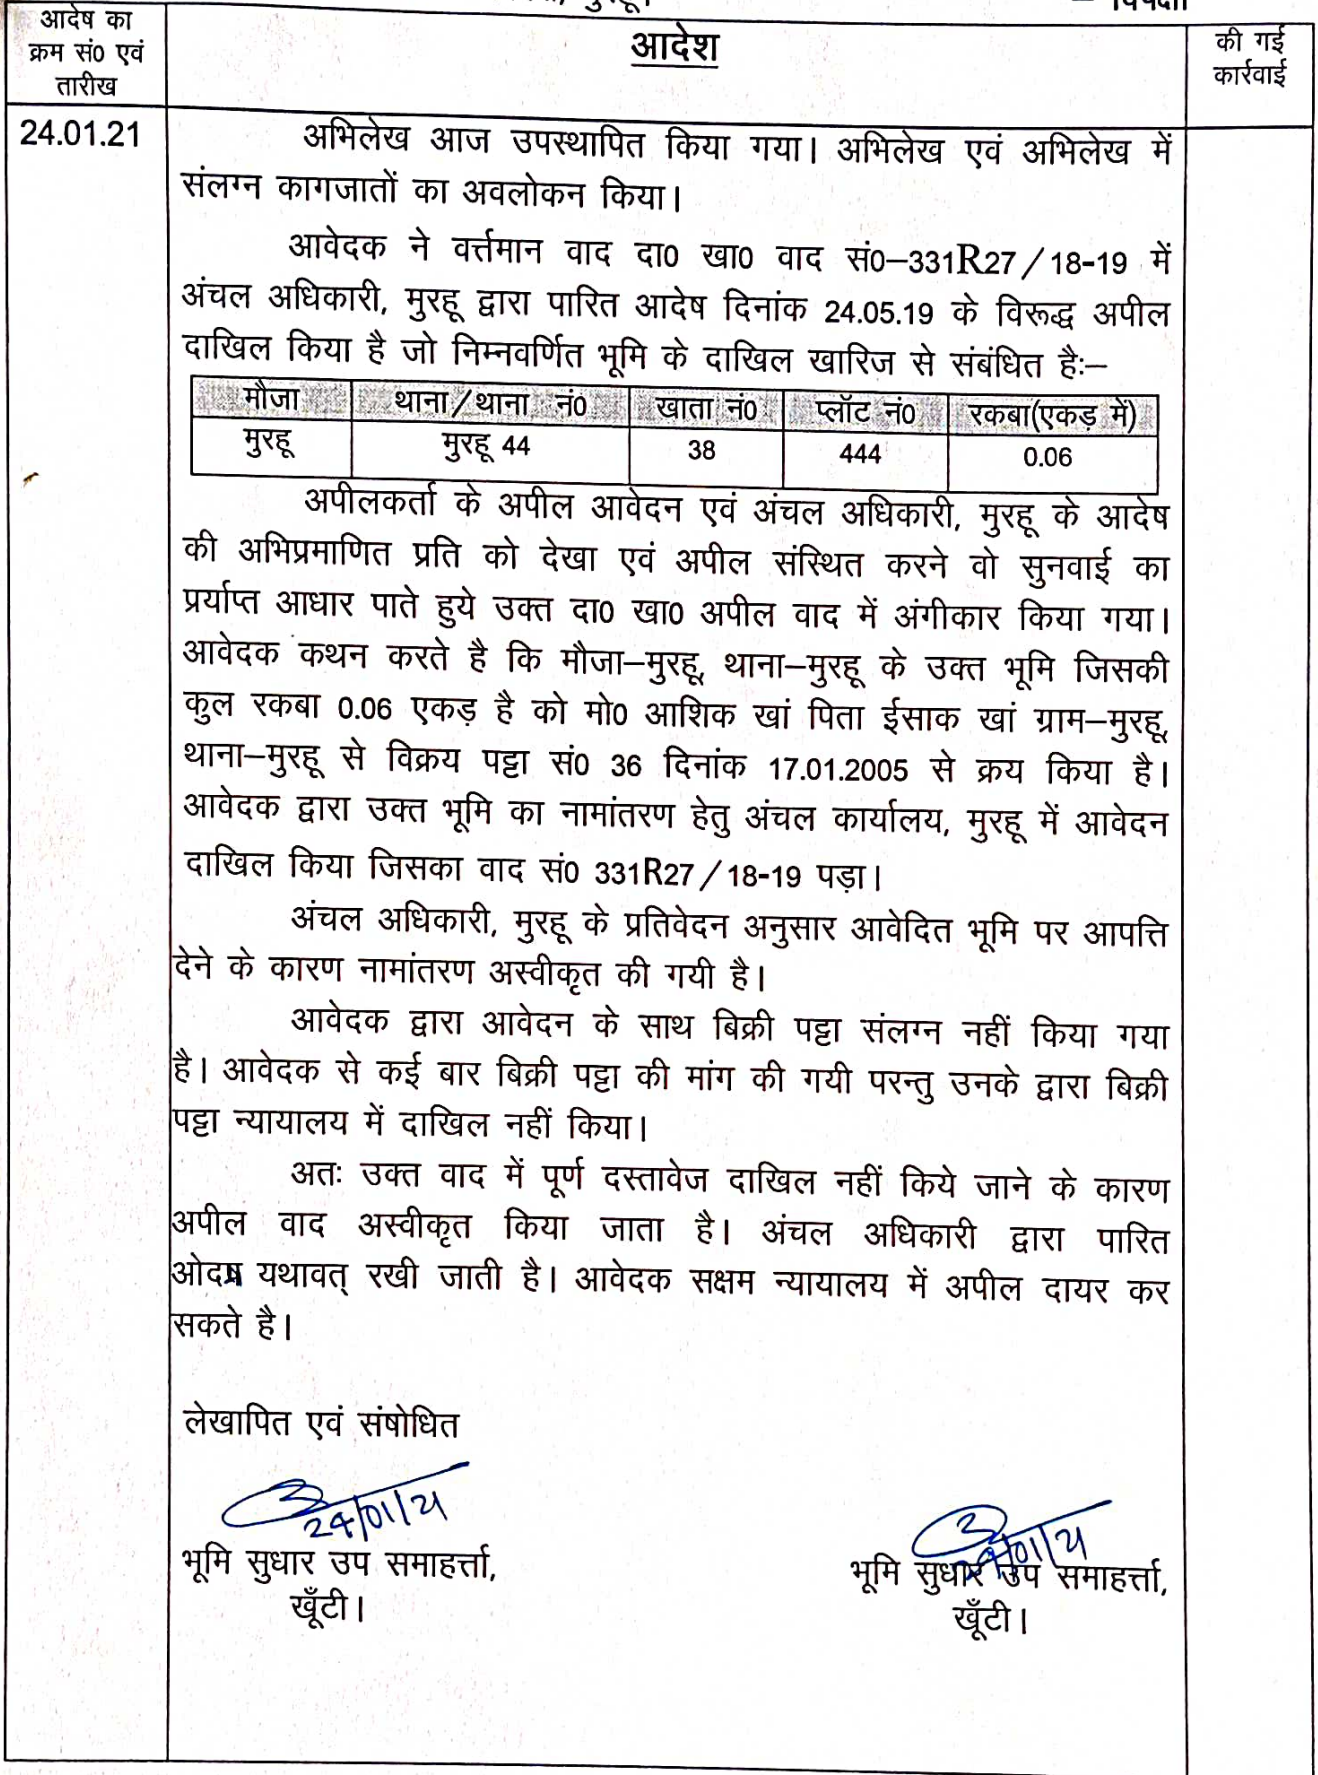 मुरहू।
आदेष का
क्रम सं0 एवं
तारीख
आदेश
की गई
कार्रवाई
24.01.21
अभिलेख आज उपस्थापित किया गया। अभिलेख एवं अभिलेख में
संलग्न कागजातों का अवलोकन किया।
आवेदक ने वर्त्तमान वाद दा0 खा0 वाद सं0–331R27/18-19 में
अंचल अधिकारी, मुरहू द्वारा पारित आदेष दिनांक 24.05.19 के विरूद्ध अपील
दाखिल किया है जो निम्नवर्णित भूमि के दाखिल खारिज से संबंधित है:–
मौजा थाना/थाना नं0 खाता नं0 प्लॉट नं0 रकबा(एकड़ में)
मुरहू मुरहू 44 38 444 0.06
अपीलकर्ता के अपील आवेदन एवं अंचल अधिकारी, मुरहू के आदेष
की अभिप्रमाणित प्रति को देखा एवं अपील संस्थित करने वो सुनवाई का
प्रर्याप्त आधार पाते हुये उक्त दा0 खा0 अपील वाद में अंगीकार किया गया।
आवेदक कथन करते है कि मौजा–मुरहू, थाना–मुरहू के उक्त भूमि जिसकी
कुल रकबा 0.06 एकड़ है को मो0 आशिक खां पिता ईसाक खां ग्राम–मुरहू,
थाना–मुरहू से विक्रय पट्टा सं0 36 दिनांक 17.01.2005 से क्रय किया है।
आवेदक द्वारा उक्त भूमि का नामांतरण हेतु अंचल कार्यालय, मुरहू में आवेदन
दाखिल किया जिसका वाद सं0 331R27/18-19 पड़ा।
अंचल अधिकारी, मुरहू के प्रतिवेदन अनुसार आवेदित भूमि पर आपत्ति
देने के कारण नामांतरण अस्वीकृत की गयी है।
आवेदक द्वारा आवेदन के साथ बिक्री पट्टा संलग्न नहीं किया गया
है। आवेदक से कई बार बिक्री पट्टा की मांग की गयी परन्तु उनके द्वारा बिक्री
पट्टा न्यायालय में दाखिल नहीं किया।
अतः उक्त वाद में पूर्ण दस्तावेज दाखिल नहीं किये जाने के कारण
अपील वाद अस्वीकृत किया जाता है। अंचल अधिकारी द्वारा पारित
यथावत् रखी जाती है। आवेदक सक्षम न्यायालय में अपील दायर कर
सकते है।
लेखापित एवं संषोधित
24/01/21
24/01/21
भूमि सुधार उप समाहर्त्ता,
खूँटी।
भूमि सुधार उप समाहर्त्ता,
खूँटी।